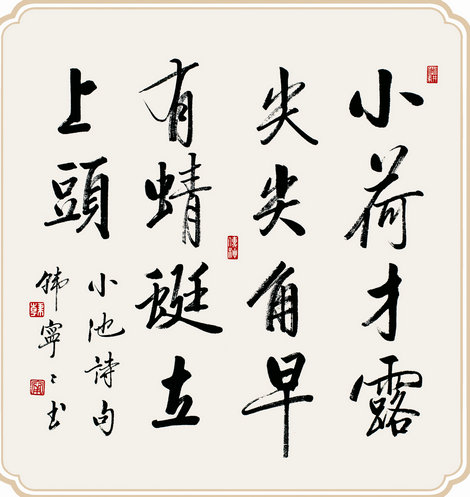 小荷才露
尖尖角早
有蜻蜓立
上頭
小池詩句
寧〻书